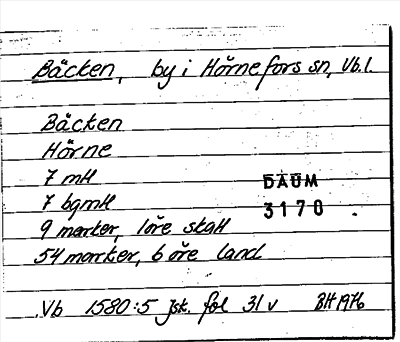 Bäcken, by i Hörnefors sn, Vb.l.
Bäcken
Hörne
7 mtl
7 bgmtl
DAUM
3170
9 marker, 1 öre skatt
54 marker, 6 öre land
Vb 1580:5 jsk. fol 31 v BH 1976